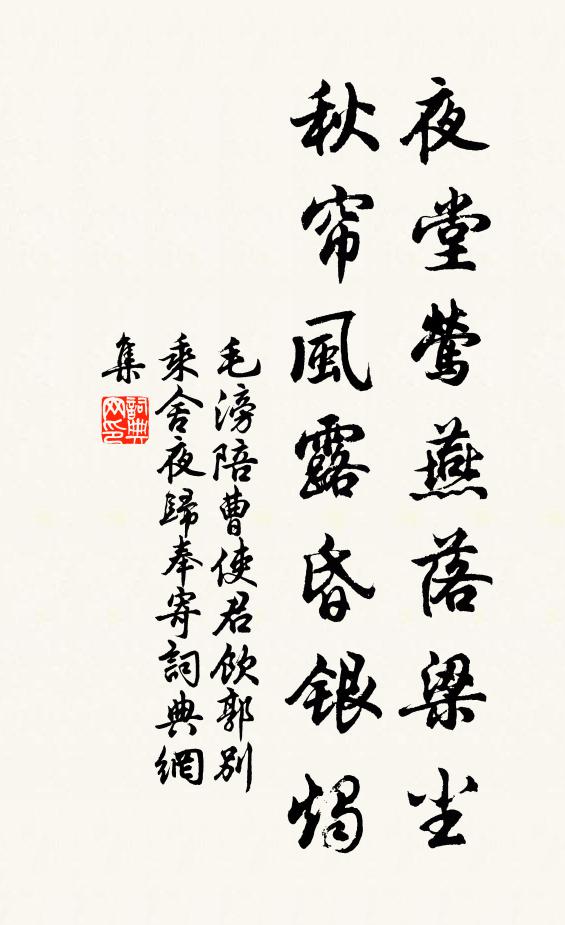 夜堂莺燕落梁尘
秋帘風露昏銀燭
毛滂陪曹使君飲郭别
乘舍夜歸奉寄詞典網
集
詞典
网印